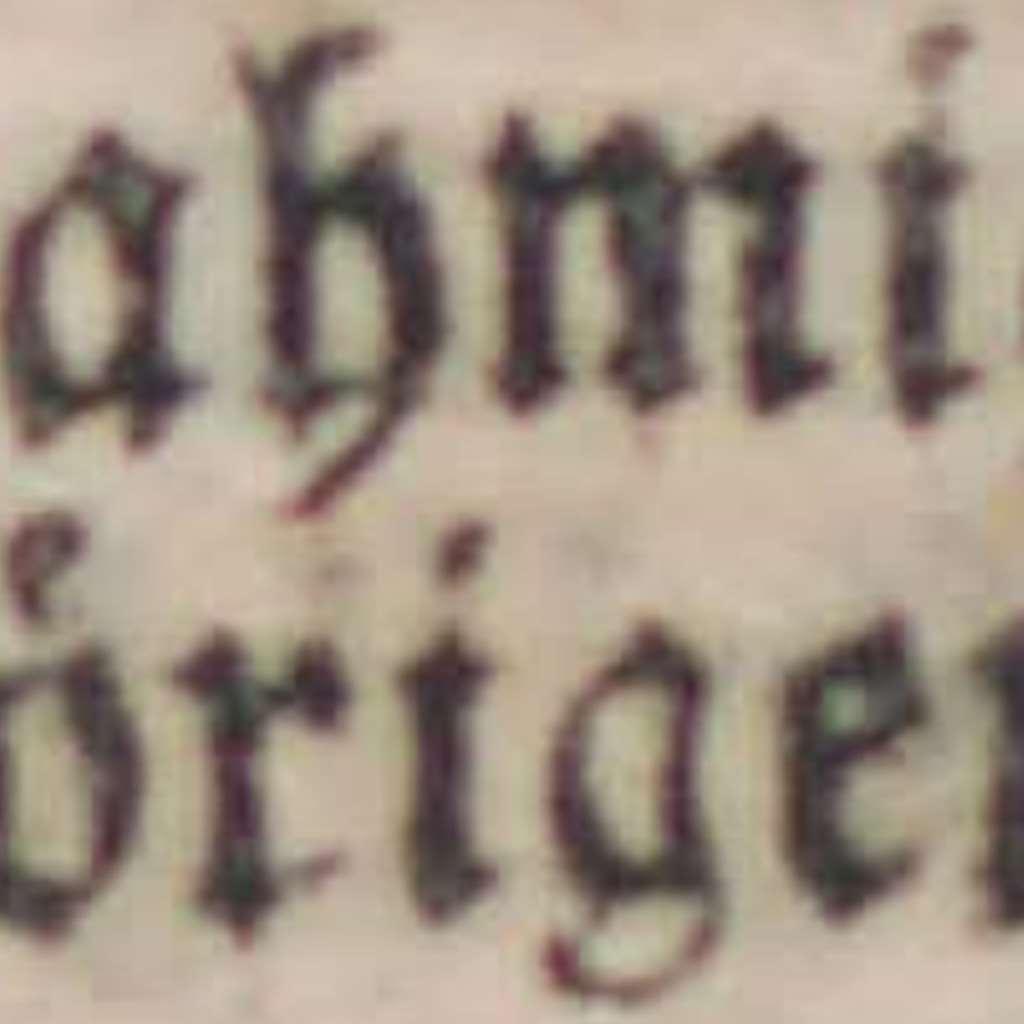 ahmi
oͤrigen